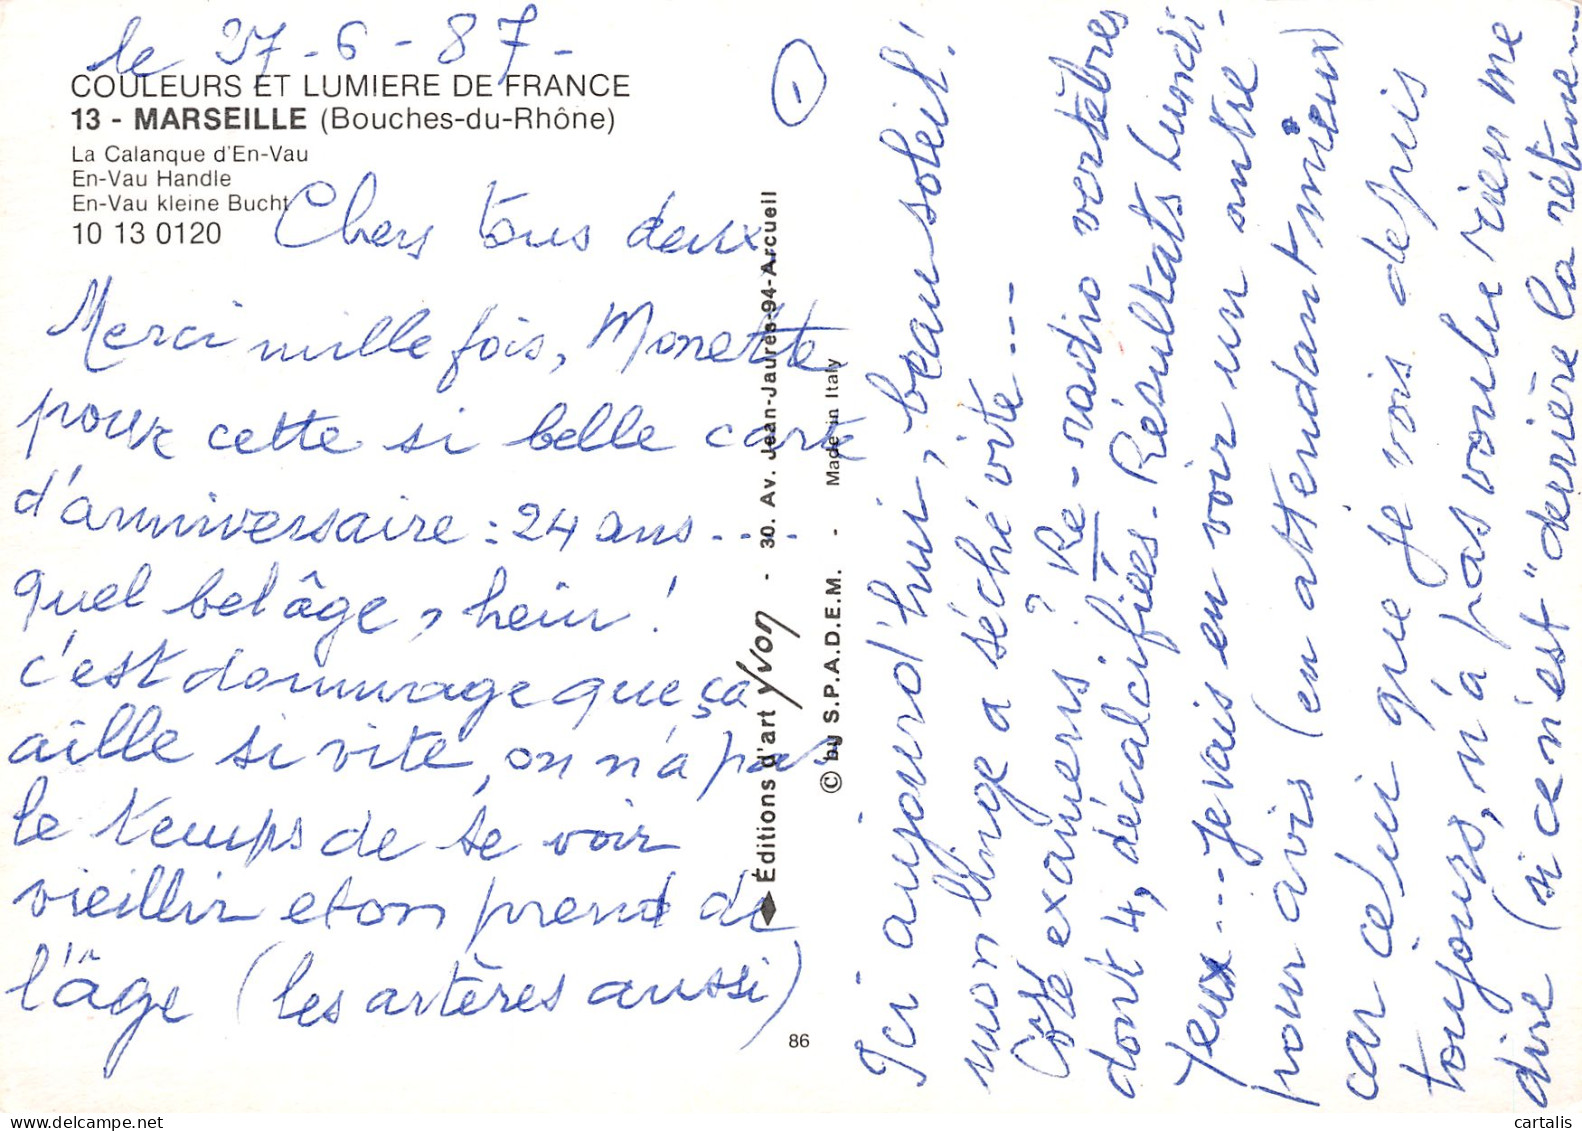 le 27-6-87-
COULEURS ET LUMIERE DE FRANCE
13 - MARSEILLE (Bouches-du-Rhône)
La Calanque d'En-Vau
En-Vau Handle
En-Vau kleine Bucht
10 13 0120
Chers tous deux,
Merci mille fois, Monette
pour cette si belle carte
d'anniversaire : 24 ans....
quel bel âge, hein !
c'est dommage que ça
aille si vite, on n'a pas
le temps de se voir
vieillir et on prend de
l'âge (les artères aussi)
Éditions d'art Yvon - 30. Av. Jean-Jaurès-94-Arcueil
© by S.P.A.D.E.M. - Made in Italy
86
1
Ici aujourd'hui, beau soleil !
mon linge a séché vite...
Côté examens ? Re-radio vertèbres
dont 4, décalcifiées. Résultats Lundi-
Yeux... Je vais en voir un autre
pour avis (en attendant mieux)
car celui que je vois depuis
toujours, n'a pas voulu rien me
dire (si ce n'est "derrière la rétine...
cartalis.com